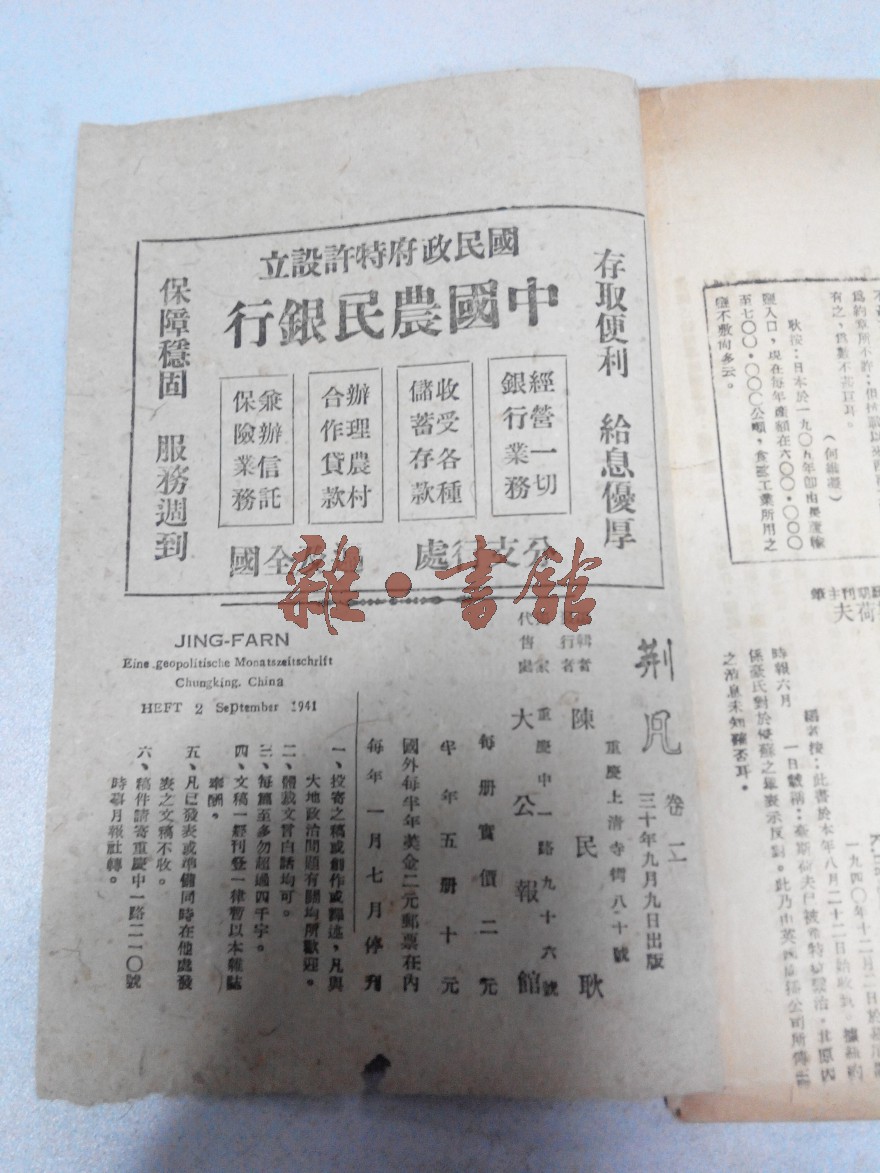 國民政府特許設立
中國農民銀行
存取便利 給息優厚
經營一切
銀行業務
收受各種
儲蓄存款
辦理農村
合作貸款
兼辦信託
保險業務
保障穩固 服務週到
分支行處
全國
雜·書館
荆凡 卷二
三十年九月九日出版
重慶上清寺街八十號
陳民耿
重慶中一路九十六號
代售處 大公報館
每册實價二元
半年五册十元
國外每半年英金二元郵票在內
每年一月七月停刋
一、投寄之稿或創作或譯述，凡與
大地政治問題有關均所歡迎。
二、體裁文言白話均可。
三、每篇至多勿超過四千字。
四、文稿一經刊登一律暫以本雜誌
奉酬。
五、凡已發表或準備同時在他處發
表之文稿不收。
六、稿件請寄重慶中一路二一〇號
時事月報社轉。
JING-FARN
Eine geopolitische Monatszeitschrift
Chungking, China
HEFT 2 September 1941
有之，爲數不甚宜耳。
耿按：日本於一九〇五年
鹽入口，現在每年產額在六〇〇・〇〇〇
至七〇〇・〇〇〇公噸，食鹽工業所用之
鹽不敷尚多云。
時報六月
係豪氏對於侵蘇之舉表示反對。此乃由英
之消息未知確否耳。